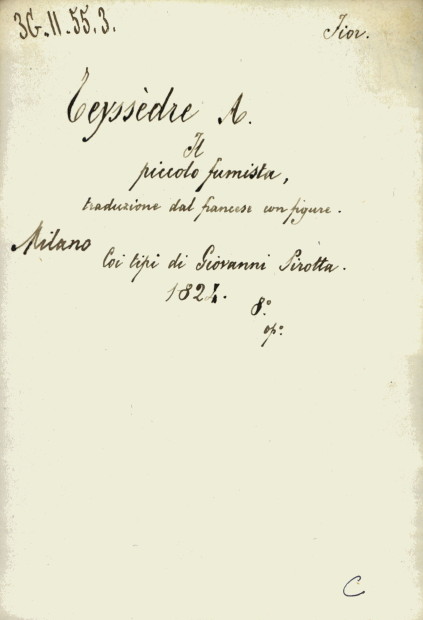 3G.11.55.3. Fior.
Teyssèdre A.
Il
piccolo fumista,
traduzione dal francese con figure.
Milano
Coi tipi di Giovanni Pirotta.
1824.
8.°
op.°
C